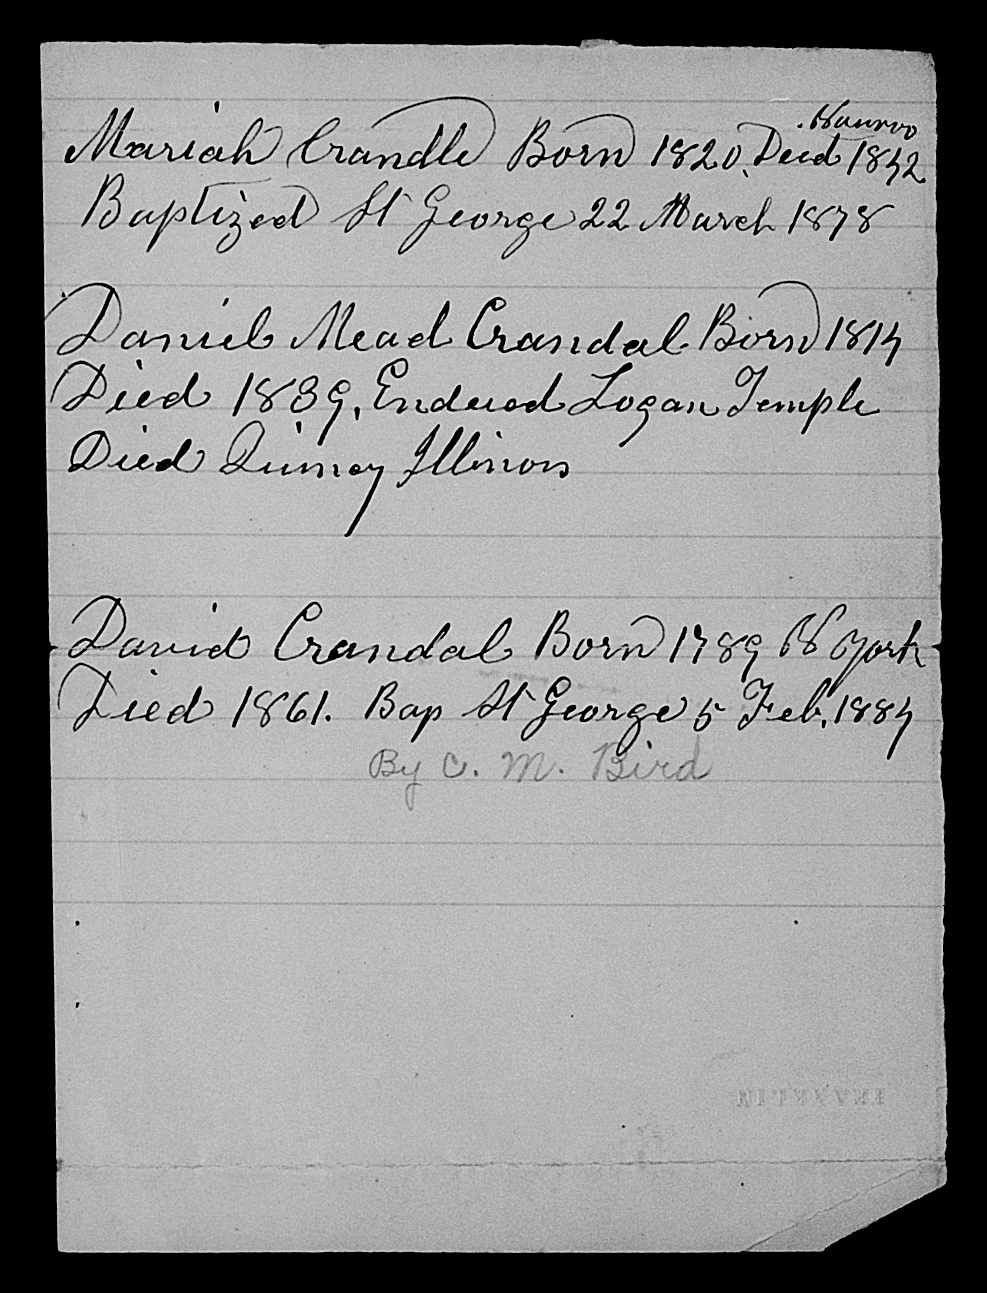 Nauvoo
Mariah Crandle Born 1820, Died 1842
Baptized St George 22 March 1878
Daniel Mead Crandal Born 1814
Died 1839, Endued Logan Temple
Died Quincy Illinois
David Crandal Born 1789 N York
Died 1861. Bap St George 5 Feb, 1884
By C. M. Bird